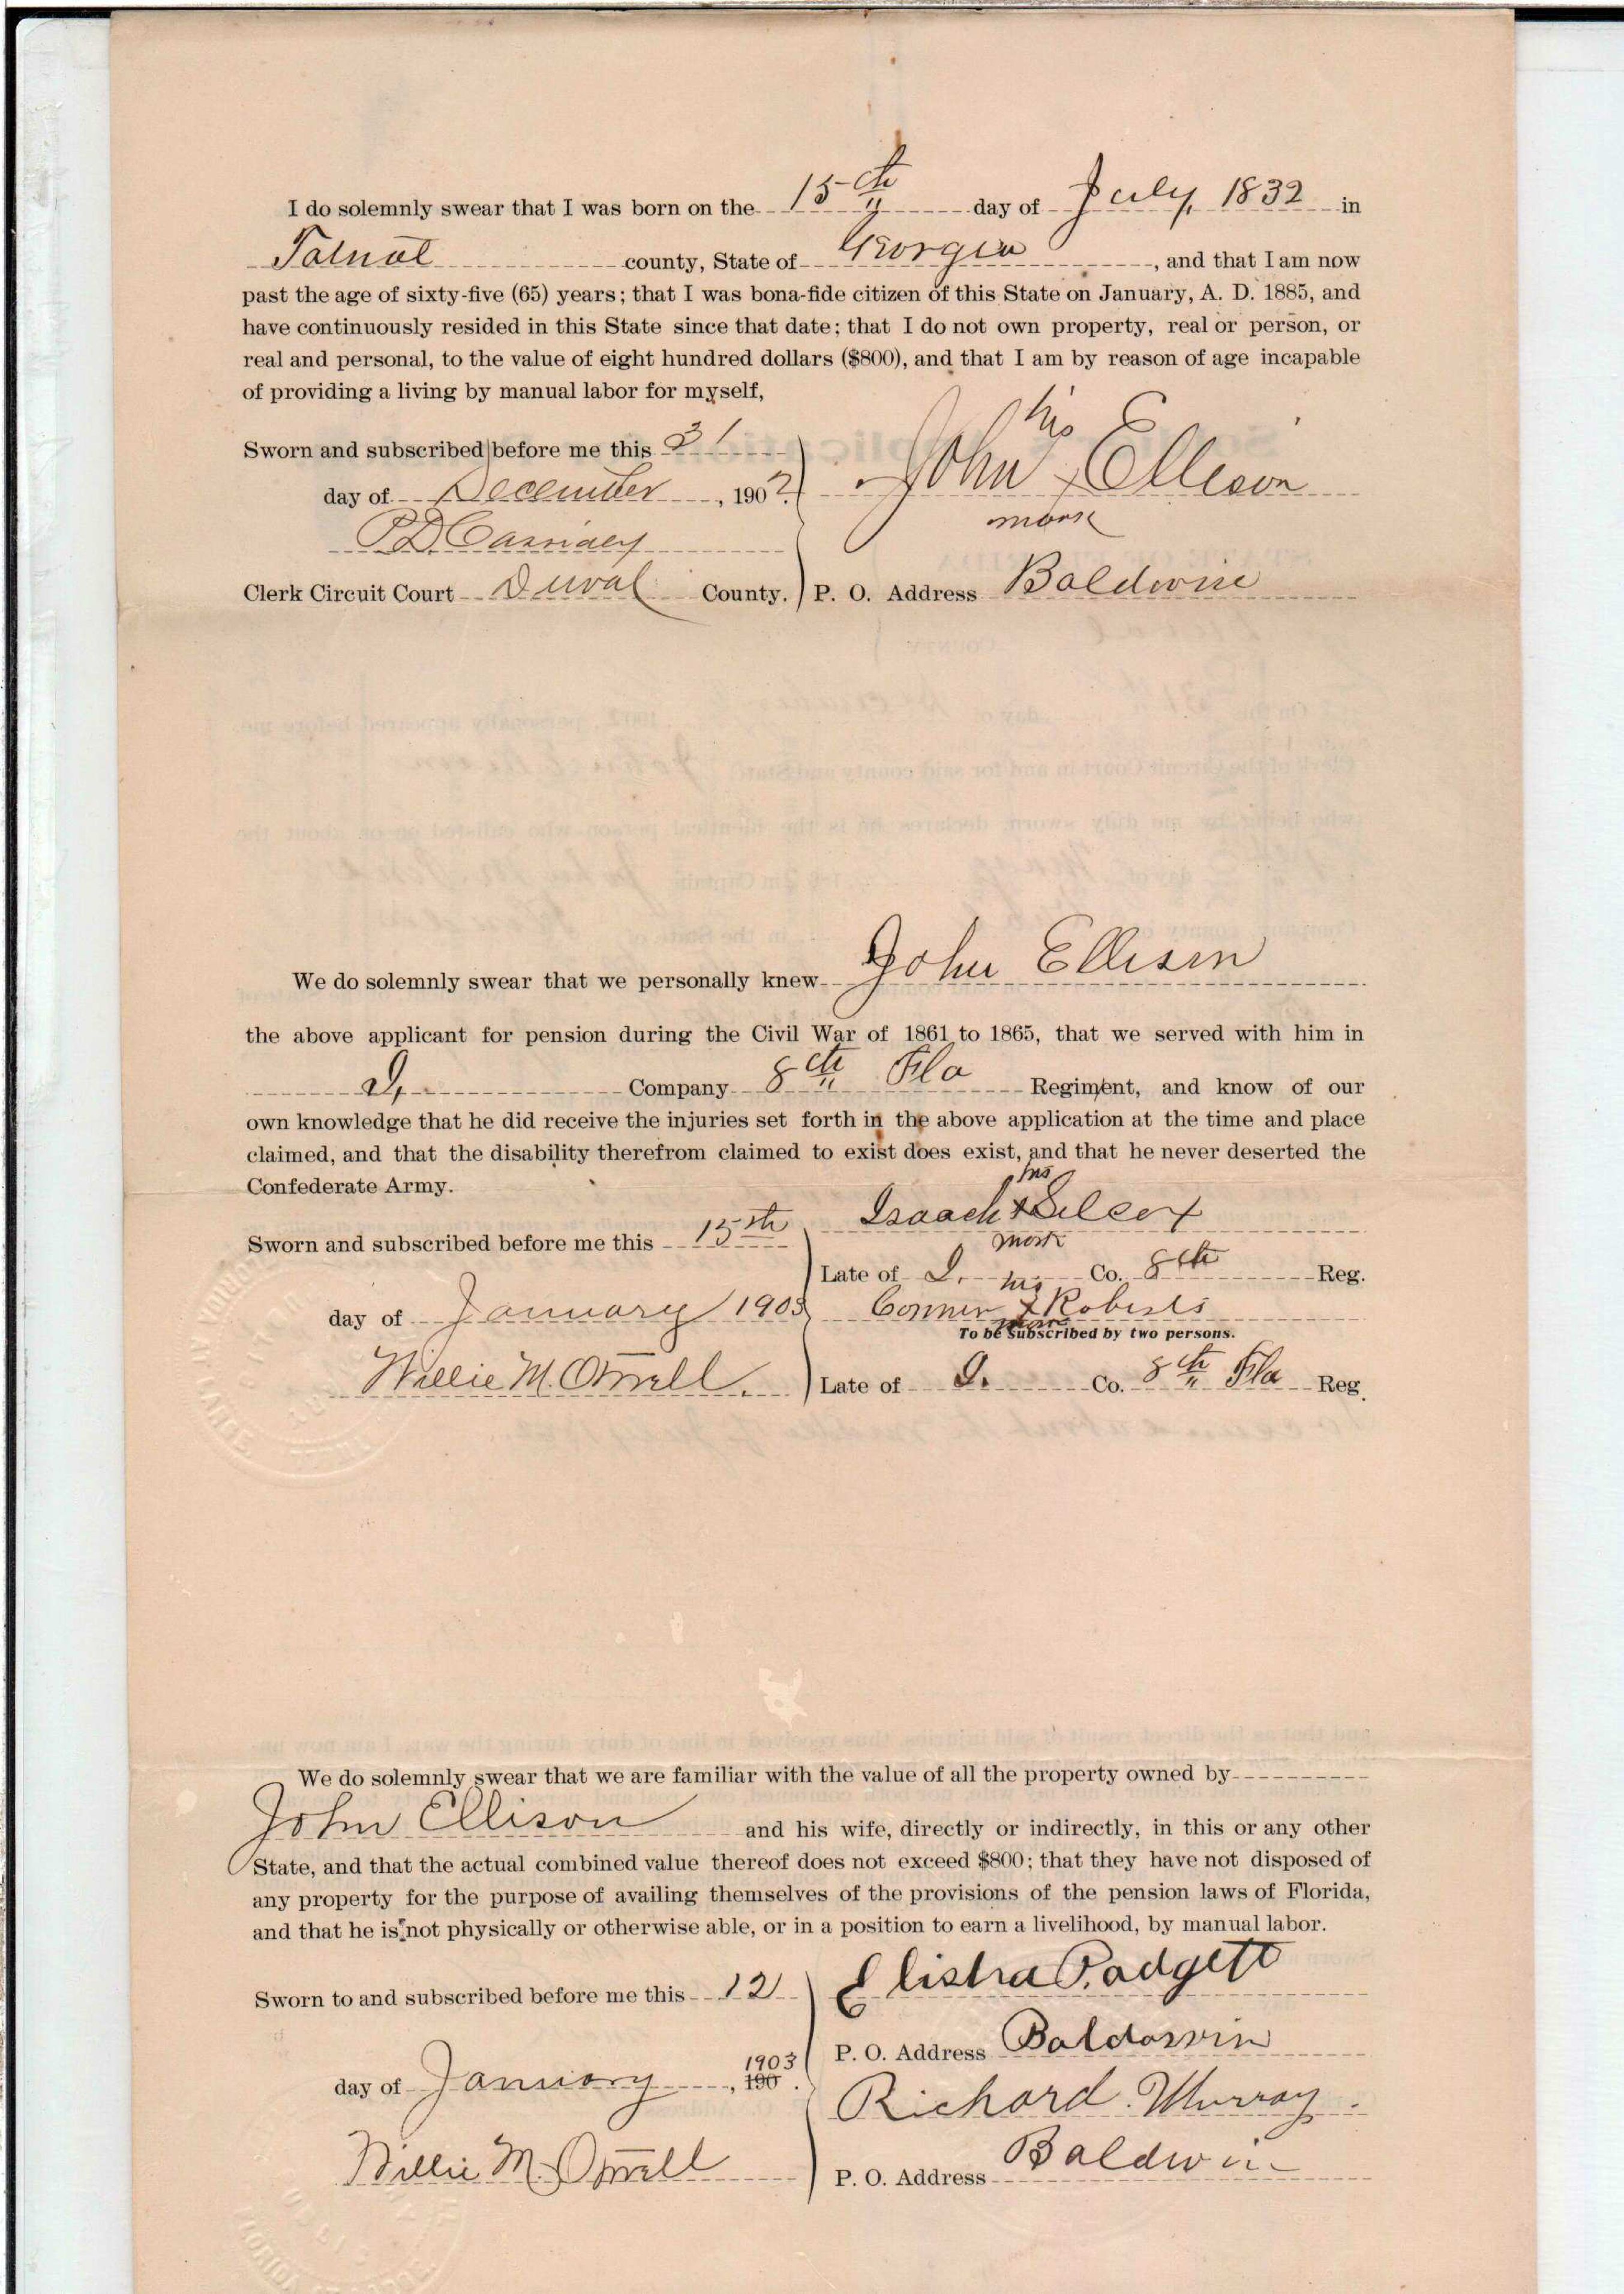 I do solemnly swear that I was born on the 15th day of July, 1832 in
Tatnal county, State of Georgia, and that I am now
past the age of sixty-five (65) years; that I was bona-fide citizen of this State on January, A. D. 1885, and
have continuously resided in this State since that date; that I do not own property, real or person, or
real and personal, to the value of eight hundred dollars ($800), and that I am by reason of age incapable
of providing a living by manual labor for myself,
his
Sworn and subscribed before me this 31
day of December, 1902. John x Ellison
mark
P D Cassidey
Clerk Circuit Court Duval County. P. O. Address Baldwin
We do solemnly swear that we personally knew John Ellison
the above applicant for pension during the Civil War of 1861 to 1865, that we served with him in
Company 8th Fla Regiment, and know of our
own knowledge that he did receive the injuries set forth in the above application at the time and place
claimed, and that the disability therefrom claimed to exist does exist, and that he never deserted the
Confederate Army.
his
Sworn and subscribed before me this 15th Isaach x Silcox
mark
Late of Co. 8th Reg.
his
day of January 1903 Conner x Roberts
mark
To be subscribed by two persons.
Willie M. Late of Co. 8th Fla Reg.
We do solemnly swear that we are familiar with the value of all the property owned by
John Ellison and his wife, directly or indirectly, in this or any other
State, and that the actual combined value thereof does not exceed $800; that they have not disposed of
any property for the purpose of availing themselves of the provisions of the pension laws of Florida,
and that he is not physically or otherwise able, or in a position to earn a livelihood, by manual labor.
Sworn to and subscribed before me this 12 Elisha Padgett
P. O. Address Baldwin
1903
day of January, 190 .
Richard Murray
Willie M.
P. O. Address Baldwin